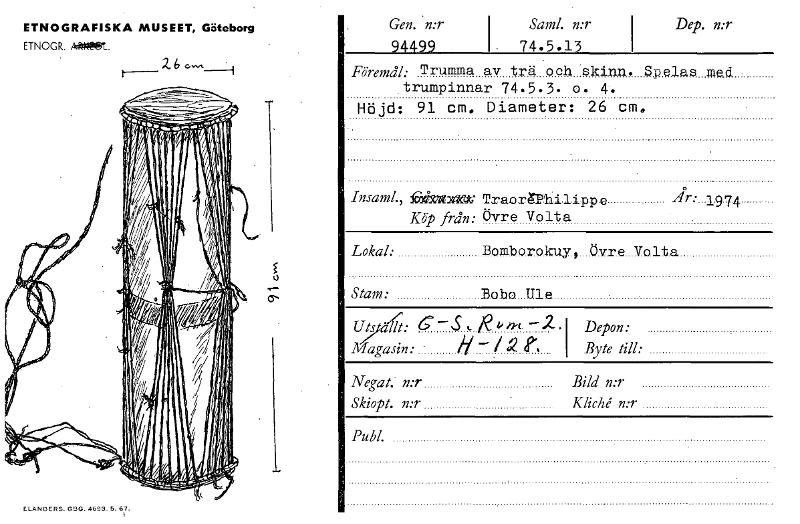 ETNOGRAFISKA MUSEET, Göteborg
ETNOGR.
26 cm
91 cm
ELANDERS. GBG. 4693. 5. 67.
Gen. n:r Saml. n:r Dep. n:r
94499 74.5.13
Föremål: Trumma av trä och skinn. Spelas med
trumpinnar 74.5.3. o. 4.
Höjd: 91 cm. Diameter: 26 cm.
Insaml., Traoré Philippe År: 1974
Köp från: Övre Volta
Lokal: Bomborokuy, Övre Volta
Stam: Bobo Ule
Utställt: G-S. Rum-2. Depon:
Magasin: H-128. Byte till:
Negat. n:r Bild n:r
Skiopt. n:r Kliché n:r
Publ.